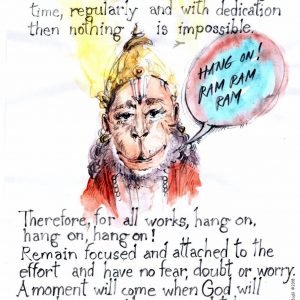 time, regularly and with dedication
then nothing is impossible.
HANG ON!
RAM RAM
RAM
Therefore, for all works, hang on,
hang on, hang on!
Remain focused and attached to the
effort and have no fear, doubt or worry.
A moment will come when God will